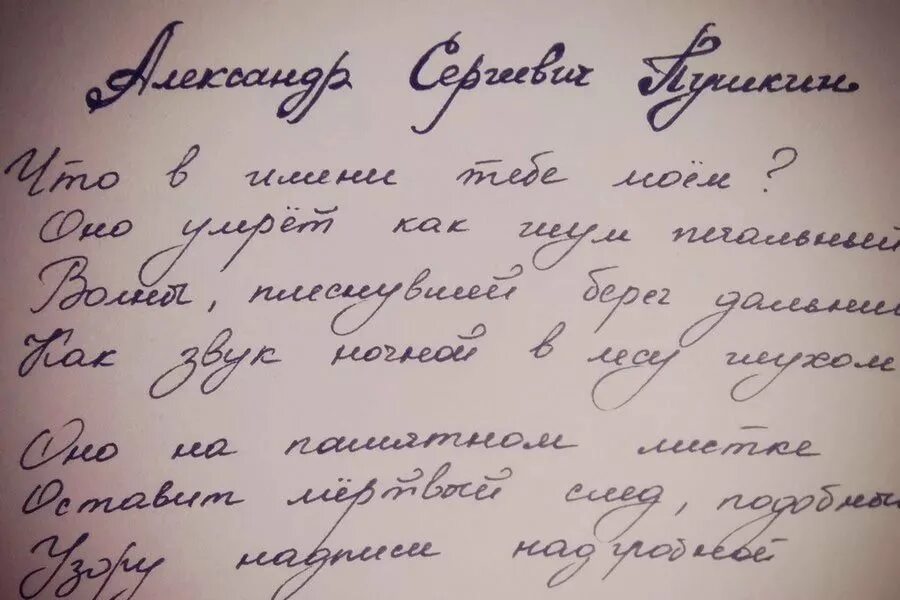 Александр Сергиевич Пушкин
Что в имени тебе моём?
Оно умрёт как шум печальный
Волны, плеснувшей берег дальни
Как звук ночной в лесу глухом
Оно на памятном листке
Оставит мёртвый след, подобны
Узору надписи надгробной